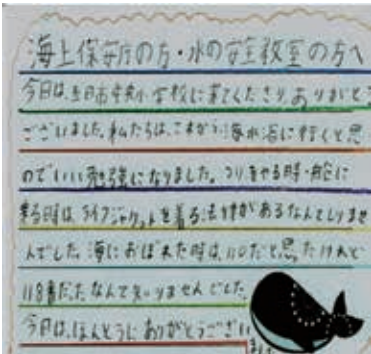 海上保安庁の方・水の安全教室の方へ
今日は、五日市中央小学校に来てくださり、ありがとう
ございました。私たちは、これから、海水浴に行くと思
のでいい勉強になりました。つりをやる時・船に
乗る時は、ライフジャケットを着る法律があるなんてしりませ
んでした。海におぼれた時は、110だと思ったけれど
118番だったなんて知りませんでした。
今日は、ほんとうにありがとうござい
ました。